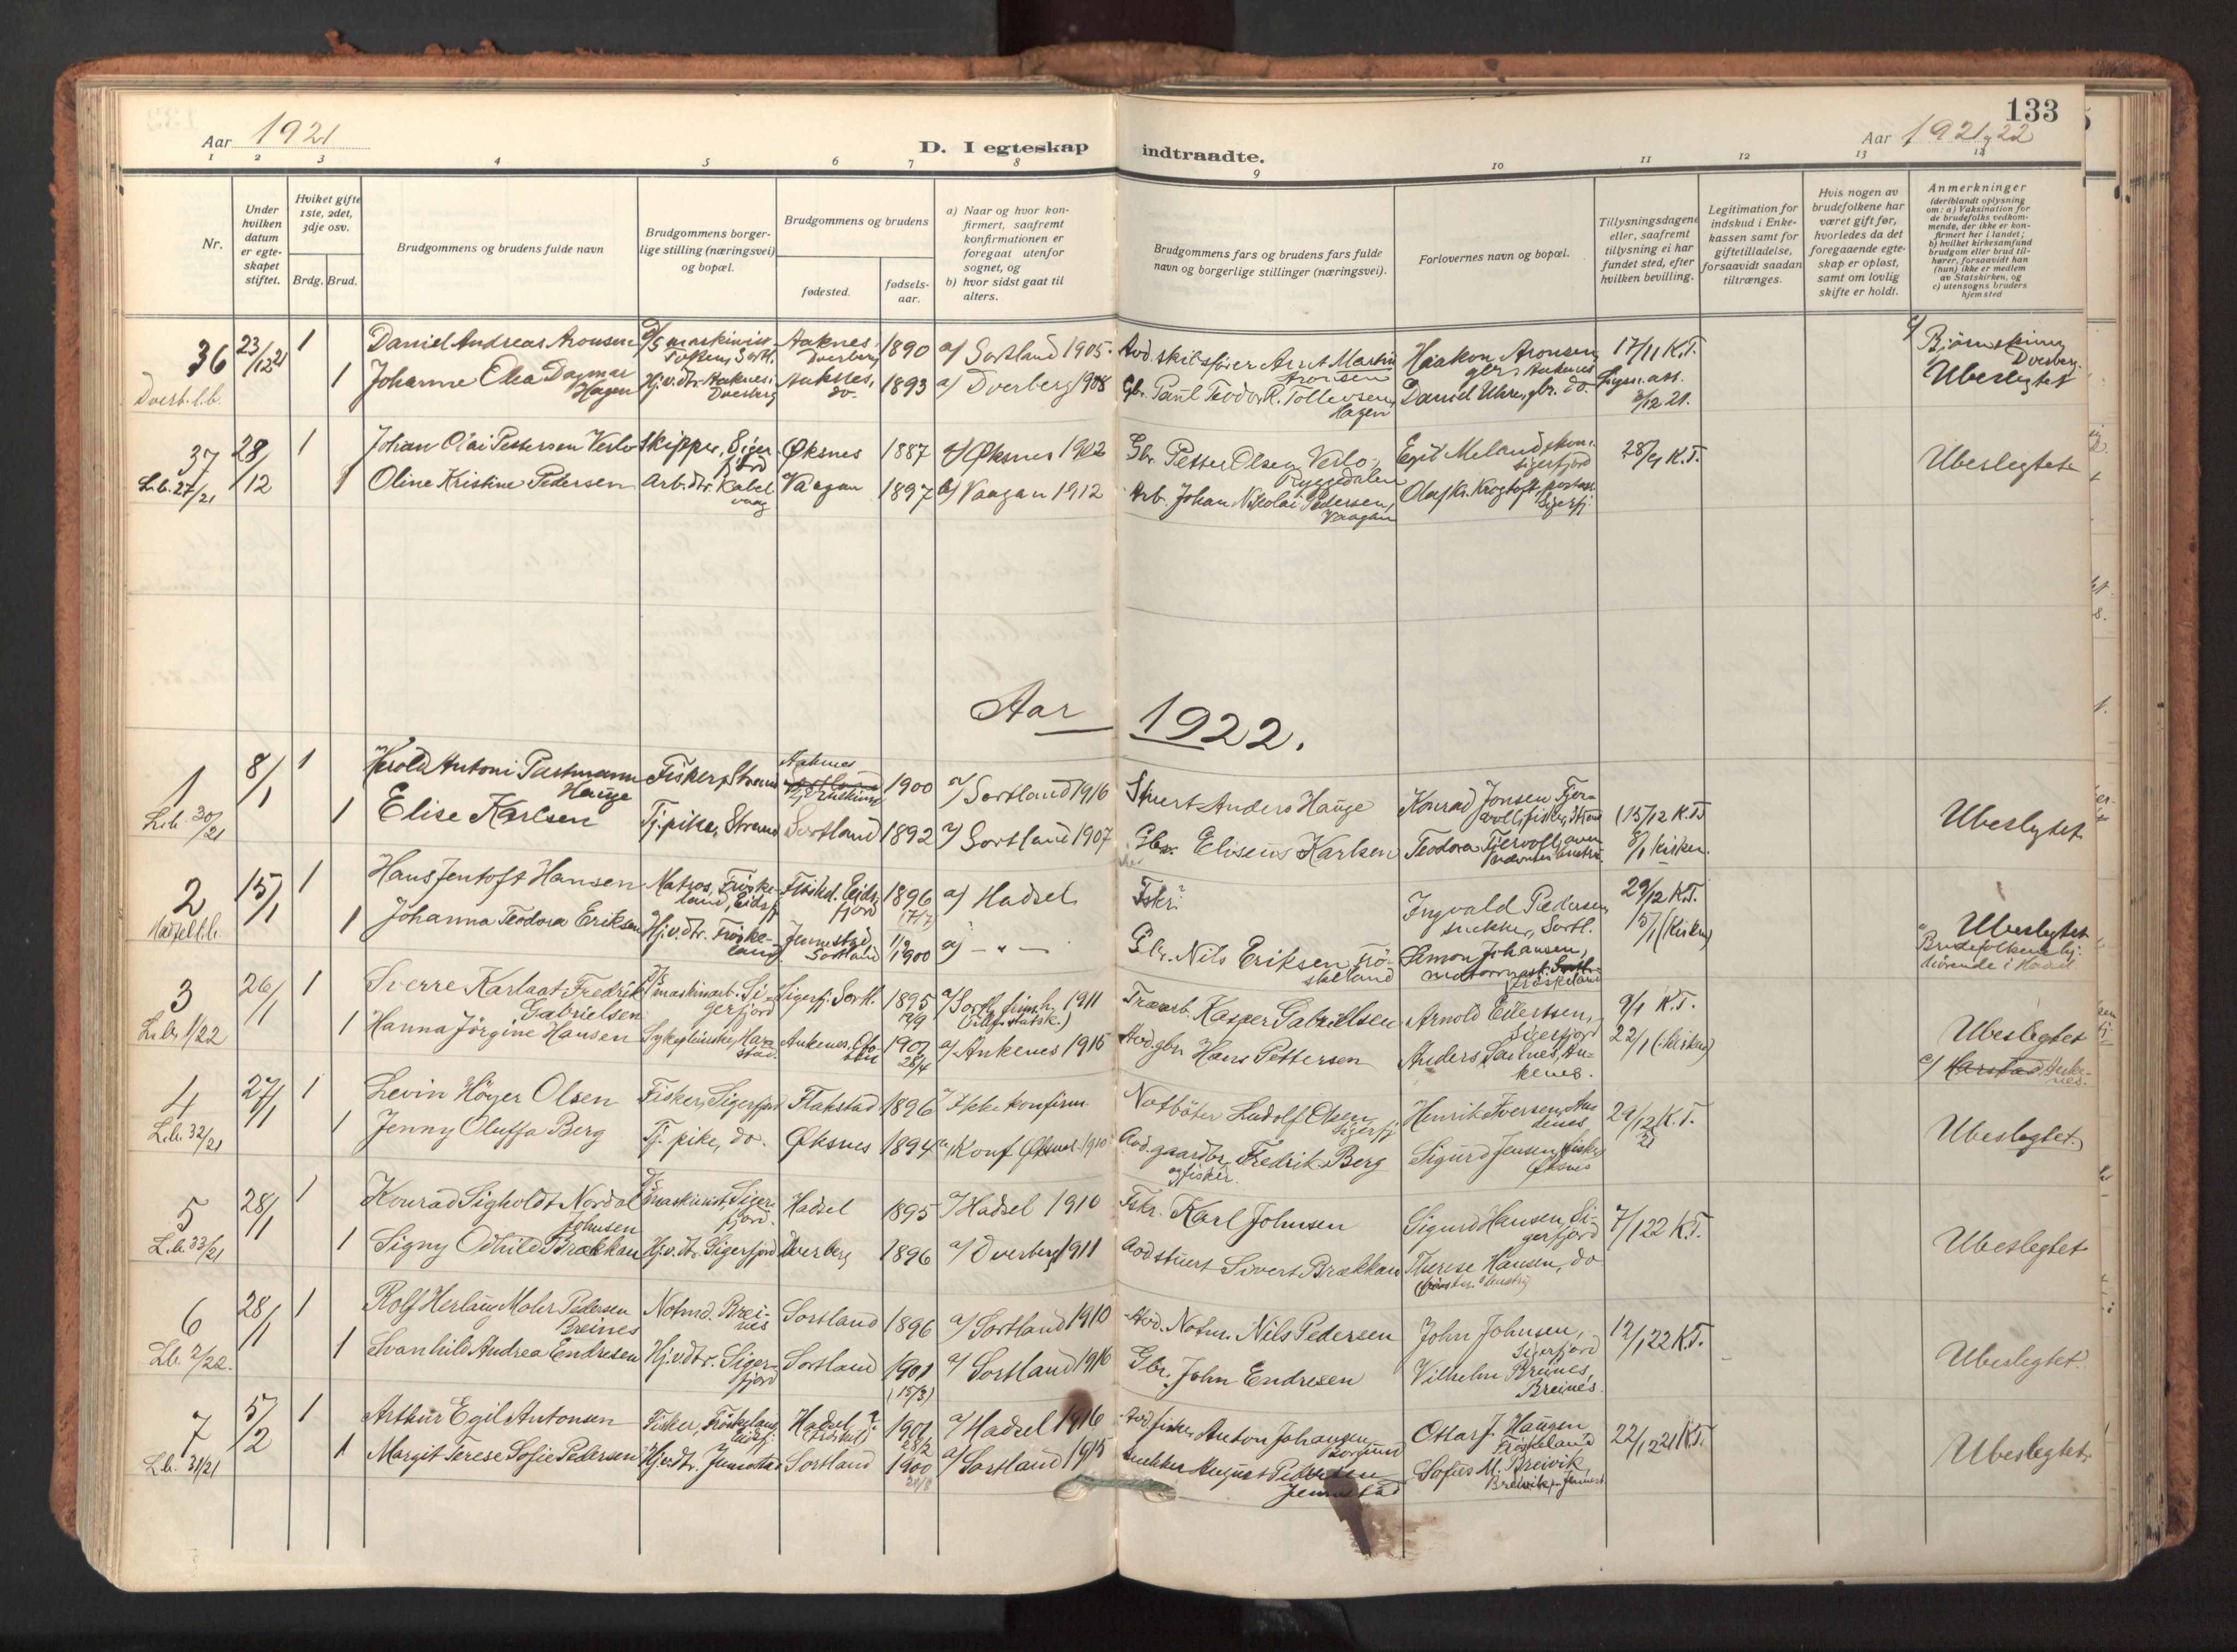 133
Aar 1921
D. I egteskap indtraadte.
Aar 1921, 22
1 2 3 4 5 6 7 8 9 10 11 12 13 14
Nr.
Under hvilken datum er egteskapet stiftet.
Hviket gifte 1ste, 2det, 3dje osv.
Brdg. Brud.
Brudgommens og brudens fulde navn
Brudgommens borgerlige stilling (næringsvei) og bopæl.
Brudgommens og brudens
fødested.
fødselsaar.
a) Naar og hvor konfirmert, saafremt konfirmationen er foregaat utenfor sognet, og
b) hvor sidst gaat til alters.
Brudgommens fars og brudens fars fulde navn og borgerlige stillinger (næringsvei).
Forlovernes navn og bopæl.
Tillysningsdagene eller, saafremt tillysning ei har fundet sted, efter hvilken bevilling.
Legitimation for indskud i Enkekassen samt for giftetilladelse, forsaavidt saadan tiltrænges.
Hvis nogen av brudefolkene har været gift før, hvorledes da det foregaaende egteskap er opløst, samt om lovlig skifte er holdt.
Anmerkninger
(deriblandt oplysning om: a) Vaksination for de brudefolks vedkommende, der ikke er konfirmert her i landet; b) hvilket kirkesamfund brudgom eller brud tilhører, forsaavidt han (hun) ikke er medlem av Statskirken, og c) utensogns bruders hjemsted
36 23/12 21 1 Daniel Andreas Aronsen Aaknes, Dverberg 1890 a/ Sortland 1905. Haakon Aronsen 17/11 K.T.
Dverb. l.b. 1 Johanne Olea Dagmar Hagen Hj.v.dtr. Aaknes, Dverberg Aaknes, do. 1893 a) Dverberg 1908 Hagen Daniel Uhre, gbr. do. 8/12 21. Dverberg Ubeslegtet
37 28/12 1 Johan Olai Pettersen Verlo Skipper, Sigerfjord Øksnes 1887 a/ Øksnes 1902 Gbr. Petter Olsen Verlo, Ryggedalen Egil Meland, Sigerfjord K.T. Ubeslegtet
L.b. 27/21 1 Oline Kristine Pedersen Arb.dtr. Kabelvaag Vaagan 1897 Vaagan 1912 Arb. Johan Nikolai Pedersen, Vaagan Olaf Kr. Krogtoft, Sigerfj.
Aar 1922.
1 8/1 1 Antoni Hauge Fisker, Strand Aaknes 1900 a/ Sortland 1916 Anders Hauge Konrad Jonsen 15/12 K.T.
L.b. 30/21 1 Elise Karlsen Tj.pike, Strand Sortland 1892 a/ Sortland 1907 Gbr. Eliseus Karlsen Teodora 8/1 kirken. Ubeslegtet
2 15/1 1 Hans Jentoft Hansen Matros, Frøskeland, Eidsfj. Eidsfjord 1896 a) Hadsel Fskr. Ingvald Pedersen, snekker, Sortl. 29/12 K.T.
Hadsel l.b. 1 Johanna Teodora Eriksen Hj.v.dtr. Frøskeland Jennestad Sortland 1900 a) — " — Gbr. Nils Eriksen Frøskeland Simon Johansen, Frøskeland 15/1 (kirken) Ubeslegtet
3 26/1 1 Sverre Karlaat Fredrik Gabrielsen maskinarb. Sigerfjord Sigerfj. Sortl. 1895 a/ Sortl. 1911 Kasper Gabrielsen Arnold Eilertsen, Sigerfjord 9/1 K.T.
L.b. 1/22 1 Hanna Jørgine Hansen Sykepleierske, Harstad. Ankenes, 1901 a/ Ankenes 1915 Hans Pettersen Anders Ankenes. 22/1 (kirken) Ubeslegtet
c/ Harstad
4 27/1 1 Levin Höyer Olsen Fisker, Sigerfjord Flakstad 1896 Ikke konfirm. Notbøter Ludolf Olsen, Sigerfj. Henrik Iversen 29/12 K.T. 21
L.b. 32/21 1 Jenny Oluffa Berg Tj. pike, do. Øksnes 1894 a, Konf. Øksnes 1910 Avd. gaardbr. og fisker Fredrik Berg Sigurd Jensen, fisker, Øksnes Ubeslegtet.
5 28/1 1 Konrad Sigholdt Nordal Johnsen maskinist, Sigerfjord. Hadsel 1895 a/ Hadsel 1910 Fskr. Karl Johnsen Sigurd Hansen, Sigerfjord 7/1 22 K.T.
L.b. 33/21 1 Signy Odhild Brækkan Hj.v.dtr. Sigerfjord Dverberg 1896 a/ Dverberg 1911 Avd. Sivert Brækkan Therese Hansen, do Ubeslegtet
6 28/1 1 Rolf Herlaug Mohr Pedersen Breines Notmd. Breines Sortland 1896 a/ Sortland 1910 Avd. Notm. Nils Pedersen John Johnsen, Sigerfjord 12/1 22 K.T.
L.b. 2/22. 1 Svanhild Andrea Endresen Hj.v.dtr. Sigerfjord Sortland 1901 (15/3) a/ Sortland 1916 Gbr. John Endresen Vilhelm Breines, Breines. Ubeslegtet.
7 5/2 1 Arthur Egil Antonsen Fisker, Frøskeland, Eidsfj. Hadsel 1901 a/ Hadsel 1916 Avd. fisker Anton Johansen Ottar J. Haugen Frøskeland 22/12 21 K.T.
L.b. 31/21 1 Margit Terese Sofie Pedersen Hj.v.dtr. Jennestad Sortland 1900 a/ Sortland 1915 Snekker August Pedersen Jennestad Sofus M. Breivik, Breivik Ubeslegtet